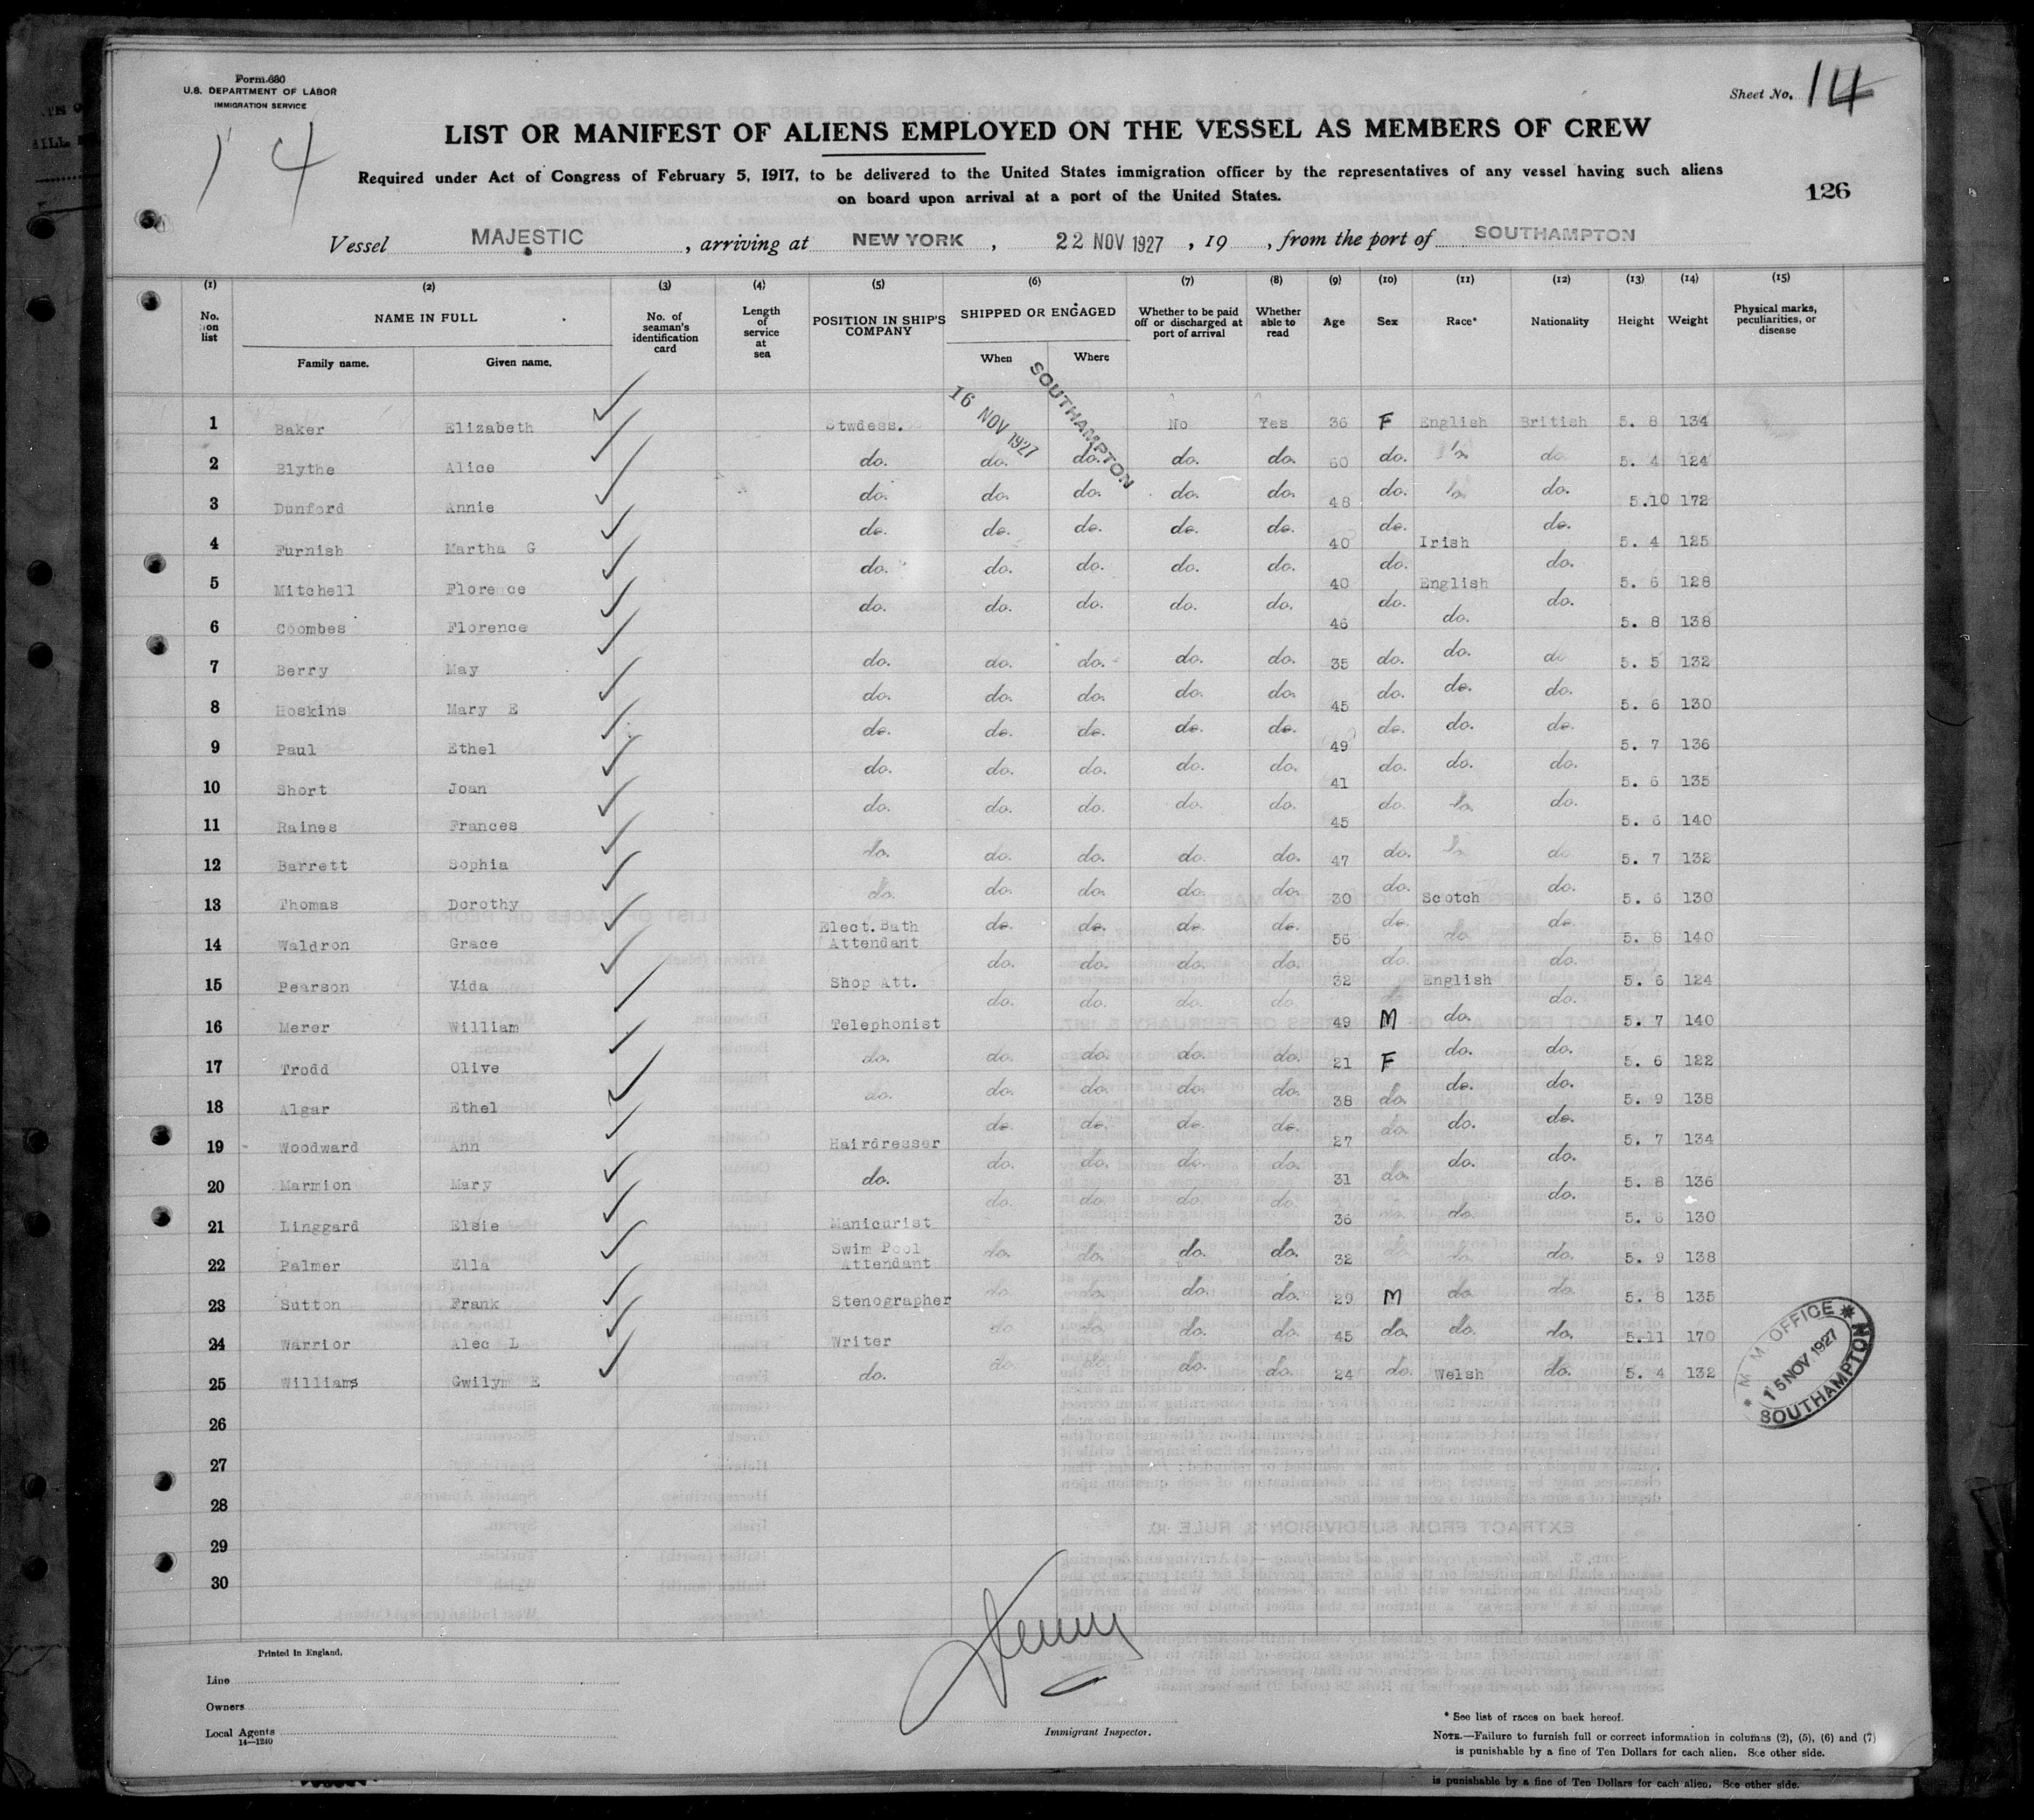 Form 680
U.S. DEPARTMENT OF LABOR
IMMIGRATION SERVICE
Sheet No. 14
14
LIST OR MANIFEST OF ALIENS EMPLOYED ON THE VESSEL AS MEMBERS OF CREW
Required under Act of Congress of February 5, 1917, to be delivered to the United States immigration officer by the representatives of any vessel having such aliens
on board upon arrival at a port of the United States.
126
Vessel MAJESTIC, arriving at NEW YORK, 22 NOV 1927, 19, from the port of SOUTHAMPTON
(1) (2) (3) (4) (5) (6) (7) (8) (9) (10) (11) (12) (13) (14) (15)
No. on list NAME IN FULL Family name. Given name. No. of seaman's identification card Length of service at sea POSITION IN SHIP'S COMPANY SHIPPED OR ENGAGED When Where Whether to be paid off or discharged at port of arrival Whether able to read Age Sex Race* Nationality Height Weight Physical marks, peculiarities, or disease
1 Baker Elizabeth Stwdess. 16 NOV 1927 SOUTHAMPTON No Yes 36 F English British 5. 8 134
2 Blythe Alice do. do. do. do. do. 60 do. do. do. 5. 4 124
3 Dunford Annie do. do. do. do. do. 48 do. do. do. 5.10 172
4 Furnish Martha G do. do. do. do. do. 40 do. Irish do. 5. 4 125
5 Mitchell Florence do. do. do. do. do. 40 do. English do. 5. 6 128
6 Coombes Florence do. do. do. do. do. 46 do. do. do. 5. 8 138
7 Berry May do. do. do. do. do. 35 do. do. do. 5. 5 132
8 Hoskins Mary E do. do. do. do. do. 45 do. do. do. 5. 6 130
9 Paul Ethel do. do. do. do. do. 49 do. do. do. 5. 7 136
10 Short Joan do. do. do. do. do. 41 do. do. do. 5. 6 135
11 Raines Frances do. do. do. do. do. 45 do. do. do. 5. 6 140
12 Barrett Sophia do. do. do. do. do. 47 do. do. do. 5. 7 132
13 Thomas Dorothy do. do. do. do. do. 30 do. Scotch do. 5. 6 130
14 Waldron Grace Elect. Bath Attendant do. do. do. do. 56 do. do. do. 5. 8 140
15 Pearson Vida Shop Att. do. do. do. do. 32 do. English do. 5. 6 124
16 Merer William Telephonist do. do. do. do. 49 M do. do. 5. 7 140
17 Trodd Olive do. do. do. do. do. 21 F do. do. 5. 6 122
18 Algar Ethel do. do. do. do. do. 38 do. do. do. 5. 9 138
19 Woodward Ann Hairdresser do. do. do. do. 27 do. do. do. 5. 7 134
20 Marmion Mary do. do. do. do. do. 31 do. do. do. 5. 8 136
21 Linggard Elsie Manicurist do. do. do. do. 36 do. do. do. 5. 6 130
22 Palmer Ella Swim Pool Attendant do. do. do. do. 32 do. do. do. 5. 9 138
23 Sutton Frank Stenographer do. do. do. do. 29 M do. do. 5. 8 135
24 Warrior Alec L Writer do. do. do. do. 45 do. do. do. 5.11 170
25 Williams Gwilym E do. do. do. do. do. 24 do. Welsh do. 5. 4 132
26
27
28
29
30
M M OFFICE
15 NOV 1927
SOUTHAMPTON
Printed in England.
Line
Owners
Local Agents
14—1240
Immigrant Inspector.
* See list of races on back hereof.
NOTE.—Failure to furnish full or correct information in columns (2), (5), (6) and (7)
is punishable by a fine of Ten Dollars for each alien. See other side.
is punishable by a fine of Ten Dollars for each alien. See other side.